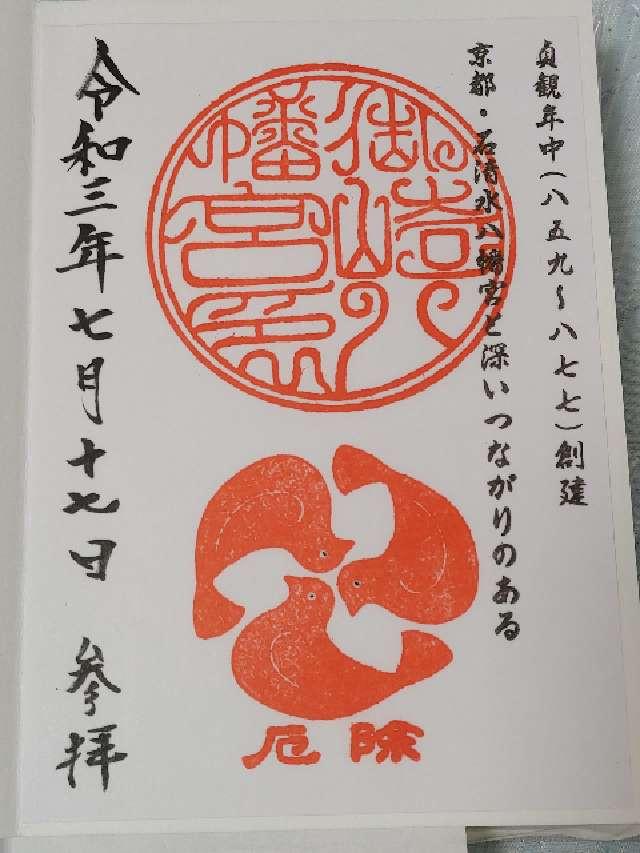 貞観年中(八五九~八七七)創建
京都・石清水八幡宮と深いつながりのある
御崎八
幡宮印
厄除
令和三年七月十七日 参拝